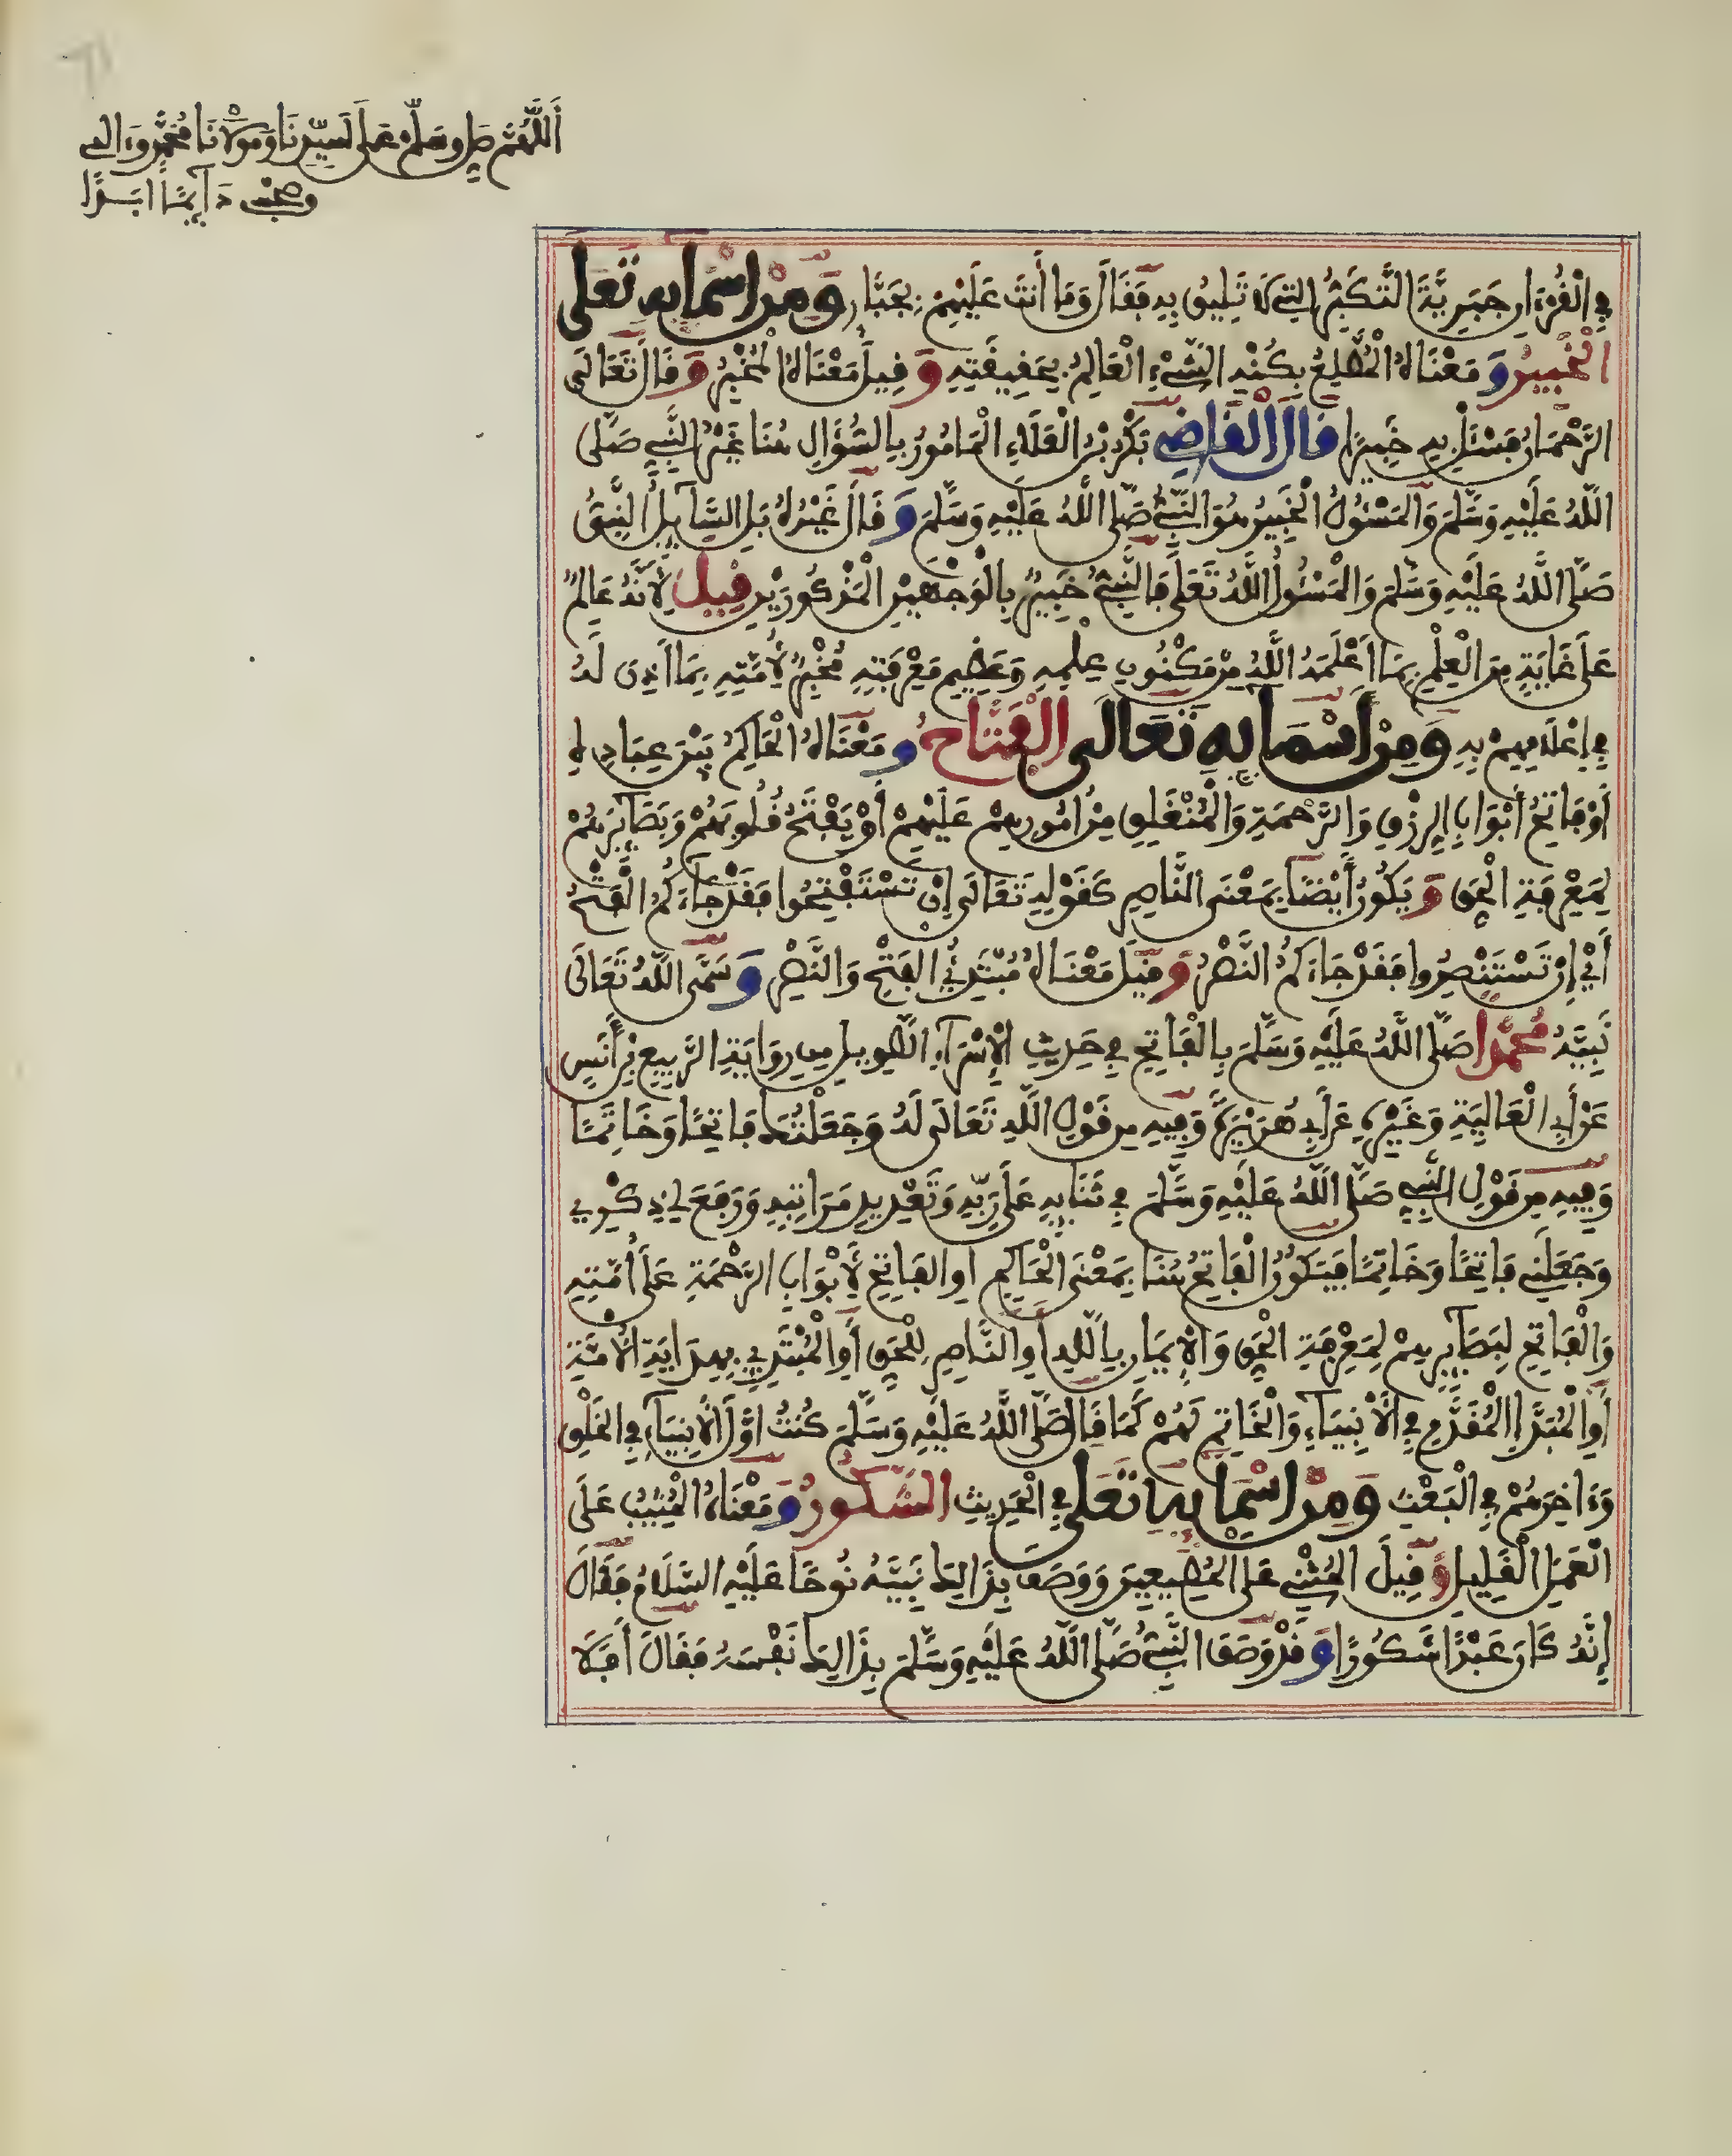 اَللَّهُمَّ صَلِّ وسَلِّمْ عَلَى سَيِّدِنَا وَمَوْلَانَا مُحَمَّدٍ وَءَالِهِ
وصَحْبِهِ دَآئِمًا اَبَدًا
فِي الْقُرْءَانِ جَبَرِيَّةَ التَّكَبُّرِ الَّتِي لَا تَلِيقُ بِهِ فَقَالَ وَمَا أَنتَ عَلَيْهِمْ بِجَبَّارٍ وَمِنْ اَسْمَائِهِ تَعَلَى
الْخَبِيرُ وَمَعْنَاهُ الْمُطَّلِعُ بِكُنْهِ الشَّيْءِ الْعَالِمُ بِحَقِيقَتِهِ وَقِيلَ مَعْنَاهُ الْمُخْبِرُ وَقَالَ تَعَالَى
الرَّحْمَانُ فَسْئَلْ بِهِ خَبِيرًا قَالَ الْقَاضِي بَكْرُ بْنُ الْعَلَاءِ الْمَامُورُ بِالسُّؤَالِ هُنَا غَيْرُ النَّبِيِّ صَلَّى
اللَّهُ عَلَيْهِ وَسَلَّمَ وَالْمَسْئُولُ الْخَبِيرُ هُوَ النَّبِيُّ صَلَّى اللَّهُ عَلَيْهِ وَسَلَّمَ وَقَالَ غَيْرُهُ بَلِ السَّآئِلُ النَّبِيُّ
صَلَّى اللَّهُ عَلَيْهِ وَسَلَّمَ وَالْمَسْئُولُ اللَّهُ تَعَلَى فَالنَّبِيُّ خَبِيرٌ بِالْوَجْهَيْنِ الْمَذْكُورَيْنِ قِيلَ لِأَنَّهُ عَالِمٌ
عَلَى غَايَةٍ مِنَ الْعِلْمِ بِمَا أَعْلَمَهُ اللَّهُ مِنْ مَكْنُونِ عِلْمِهِ وَعَظِيمِ مَعْرِفَتِهِ مُخْبِرٌ لِأُمَّتِهِ بِمَا أَذِنَ لَهُ
فِي إِعْلَامِهِمْ بِهِ وَمِنْ اَسْمَائِهِ تَعَالَى الْفَتَّاحُ وَمَعْنَاهُ الْحَاكِمُ بَيْنَ عِبَادِهِ
أَوْ فَاتِحُ أَبْوَابِ الرِّزْقِ وَالرَّحْمَةِ وَالْمُنْغَلِقِ مِنْ أُمُورِهِمْ عَلَيْهِمْ أَوْ يَفْتَحُ قُلُوبَهُمْ وَبَصَائِرَهُمْ
لِمَعْرِفَةِ الْحَقِّ وَيَكُونُ أَيْضًا بِمَعْنَى النَّاصِرِ كَقَوْلِهِ تَعَالَى إِنْ تَسْتَفْتِحُوا فَقَدْ جَاءَكُمُ الْفَتْحُ
أَيْ إِنْ تَسْتَنْصِرُوا فَقَدْ جَاءَكُمُ النَّصْرُ وَقِيلَ مَعْنَاهُ مُبْتَدِئُ الْفَتْحِ وَالنَّصْرِ وَسَمَّى اللَّهُ تَعَالَى
نَبِيَّهُ مُحَمَّدًا صَلَّى اللَّهُ عَلَيْهِ وَسَلَّمَ بِالْفَاتِحِ فِي حَدِيثِ الْإِسْرَآءِ الطَّوِيلِ مِن رِوَايَةِ الرَّبِيعِ بْنِ أَنَسٍ
عَنْ أَبِي الْعَالِيَةِ وَغَيْرِهِ عَنْ أَبِي هُرَيْرَةَ وَفِيهِ مِن قَوْلِ اللَّهِ تَعَالَى لَهُ وَجَعَلْتُكَ فَاتِحًا وَخَاتِمًا
وَفِيهِ مِن قَوْلِ النَّبِيِّ صَلَّى اللَّهُ عَلَيْهِ وَسَلَّمَ فِي ثَنَائِهِ عَلَى رَبِّهِ وَتَعْدِيدِ مَرَاتِبِهِ وَرَفَعَ لِي ذِكْرِي
وَجَعَلَنِي فَاتِحًا وَخَاتِمًا فَيَكُونُ الْفَاتِحُ هُنَا بِمَعْنَى الْحَاكِمِ اَوِ الْفَاتِحِ لِأَبْوَابِ الرَّحْمَةِ عَلَى أُمَّتِهِ
وَالْفَاتِحِ لِبَصَآئِرِهِمْ لِمَعْرِفَةِ الْحَقِّ وَالْإِيمَانِ بِاللَّهِ أَوِ النَّاصِرِ لِلْحَقِّ أَوِ الْمُبْتَدِئِ بِهِدَايَةِ الْأُمَّةِ
أَوِ الْمُبَدَّإِ الْمُقَدَّمِ فِي الْأَنْبِيَآءِ وَالْخَاتِمِ لَهُمْ كَمَا قَالَ صَلَّى اللَّهُ عَلَيْهِ وَسَلَّمَ كُنتُ أَوَّلَ الْأَنْبِيَآءِ فِي الْخَلْقِ
وَءَاخِرَهُمْ فِي الْبَعْثِ وَمِنْ اَسْمَائِهِ تَعَلَى فِي الْحَدِيثِ الشَّكُورُ وَمَعْنَاهُ الْمُثِيبُ عَلَى
الْعَمَلِ الْقَلِيلِ وَقِيلَ الْمُثْنِي عَلَى الْمُطِيعِينَ وَوَصَفَ بِذَالِكَ نَبِيَّهُ نُوحًا عَلَيْهِ السَّلَامُ فَقَالَ
إِنَّهُ كَانَ عَبْدًا شَكُورًا وَقَدْ وَصَفَ النَّبِيُّ صَلَّى اللَّهُ عَلَيْهِ وَسَلَّمَ بِذَالِكَ نَفْسَهُ فَقَالَ أَفَلَا